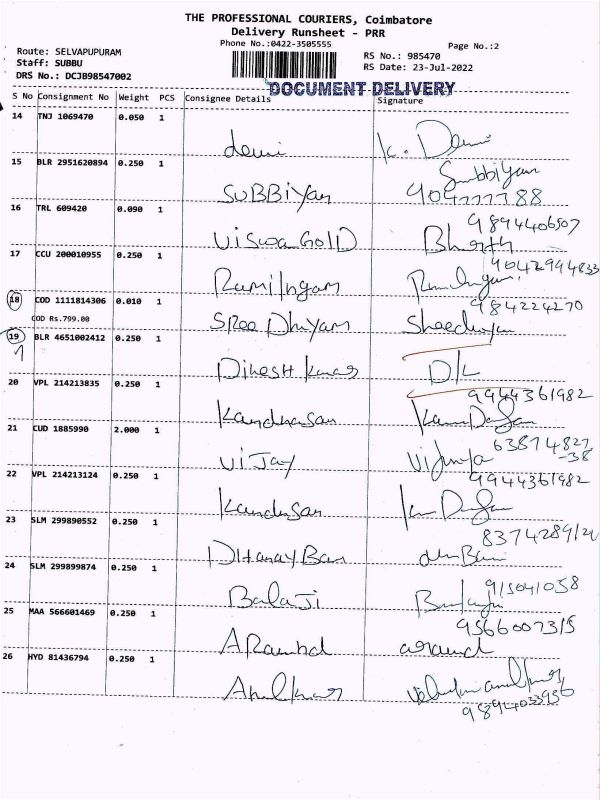 THE PROFESSIONAL COURIERS, Coimbatore
Delivery Runsheet - PRR
Phone No.:0422-3505555
Page No.:2
Route: SELVAPUPURAM
Staff: SUBBU
DRS No.: DCJB98547002
RS No.: 985470
RS Date: 23-Jul-2022
DOCUMENT DELIVERY
S No Consignment No Weight PCS Consignee Details Signature
14 TNJ 1069470 0.050 1
devi K. Devi
15 BLR 2951620894 0.250 1
Subbiyan
SUBBiYan
16 TRL 609420 0.090 1
9894406507
ViSwa GOlD Bharth
17 CCU 200010955 0.250 1
9042994833
Ramilngam
18 COD 1111814306 0.010 1
984224270
COD Rs.799.00
SRee Dhiyam
19 BLR 4651002412 0.250 1
1
DinesH kumar DK
20 VPL 214213835 0.250 1
9944361982
Kandhasan
21 CUD 1885990 2.000 1
63874827
-38
ViJay
22 VPL 214213124 0.250 1
9944361982
Kandasan
23 SLM 299890552 0.250 1
DHanayBan
24 SLM 299899874 0.250 1
915041058
BalaJi
25 MAA 566601469 0.250 1
9566007315
ARavind aravind
26 HYD 81436794 0.250 1
9894033936